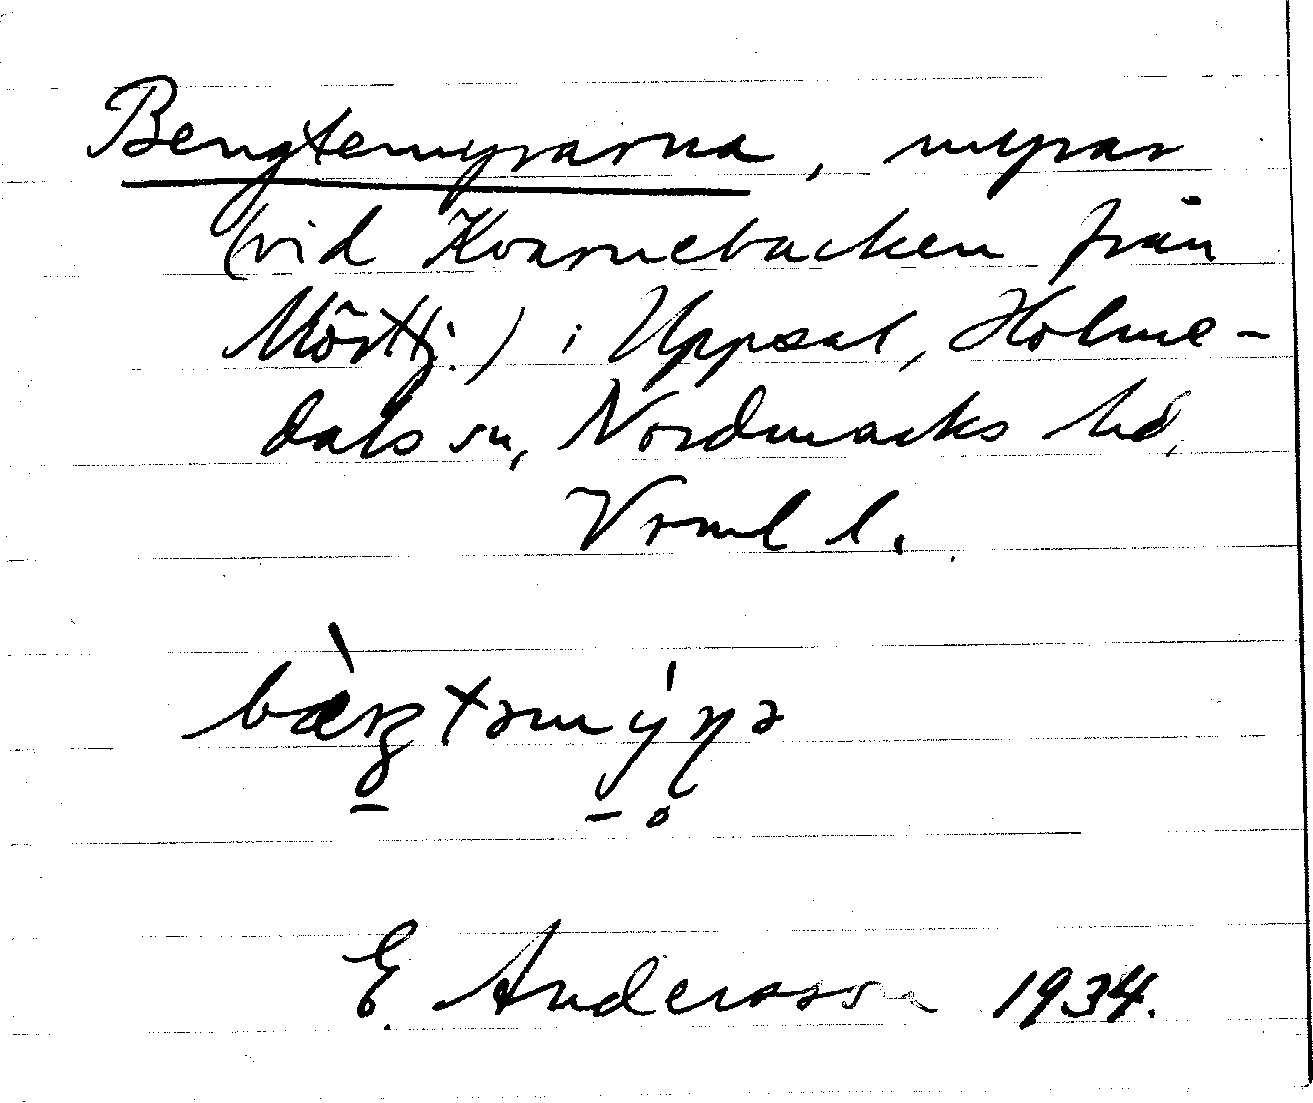 Bengtemyrarna, myrar
(vid Kvarnebacken från
Mörttj.) i Uppsal, Holme-
dals sn, Nordmarks hd,
Vrml l.
E. Andersson 1934.